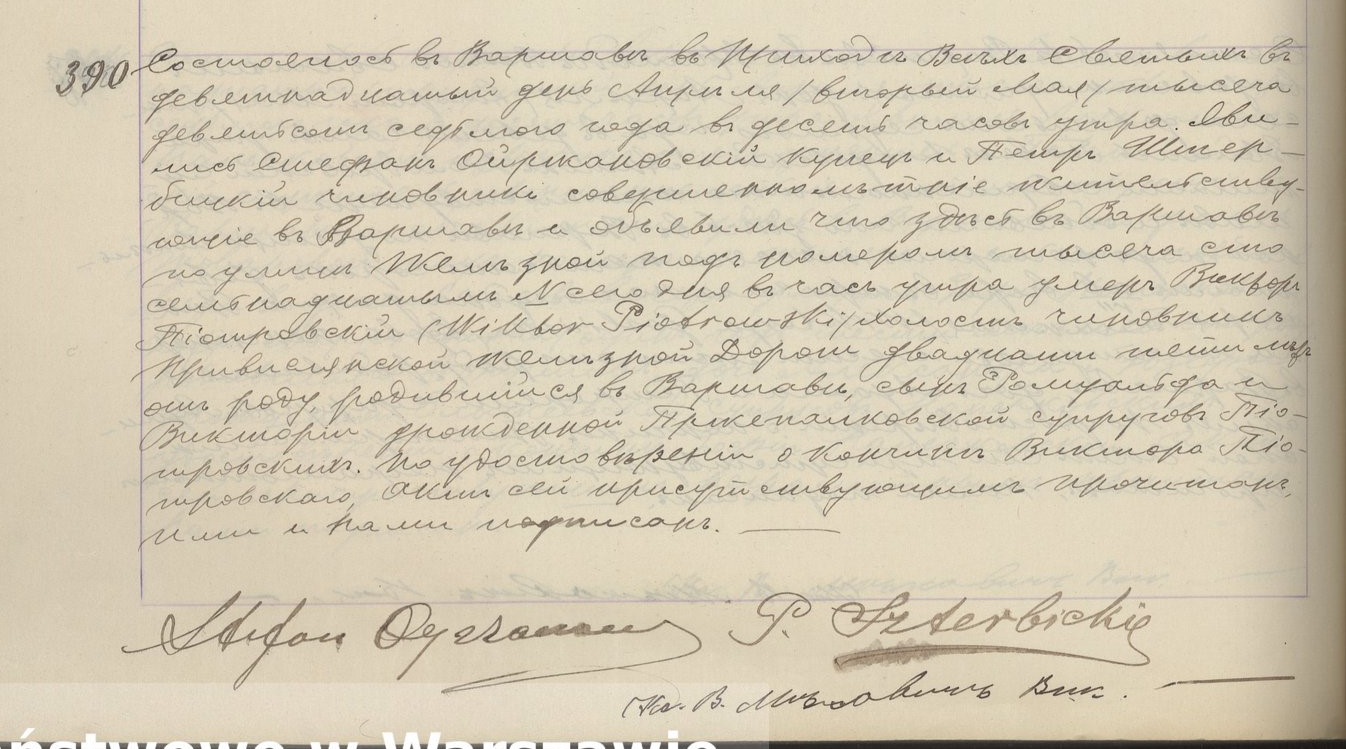 390
Состоялось въ Варшавѣ въ Приходѣ Всѣхъ Святыхъ въ
девятнадцатый день Апрѣля /второй Мая/ тысяча
девятьсотъ седьмого года въ десять часовъ утра. Яви-
лись Стефанъ Ойржановскій купецъ и Петръ Штер-
бицкій чиновникъ совершеннолѣтніе жительству-
ющіе въ Варшавѣ и объявили что здѣсь въ Варшавѣ
по улицѣ Желѣзной подъ номеромъ тысяча сто
семнадцатымъ N сегодня въ часъ утра умеръ Викторъ
Піотровскій /Wiktor Piotrowski/ холостъ чиновникъ
Привислянской Желѣзной Дороги двадцати пяти лѣтъ
отъ роду, родившійся въ Варшавѣ, сынъ Ромуальда и
Викторіи урожденной супруговъ Піо-
тровскихъ. По удостовѣреніи о кончинѣ Виктора Піо-
тровскаго, Актъ сей присутствующимъ прочитанъ,
ими и нами подписанъ.
Stefan
P. Szterbicki
Кс. В. Вик.
ństwowe w Warszawie